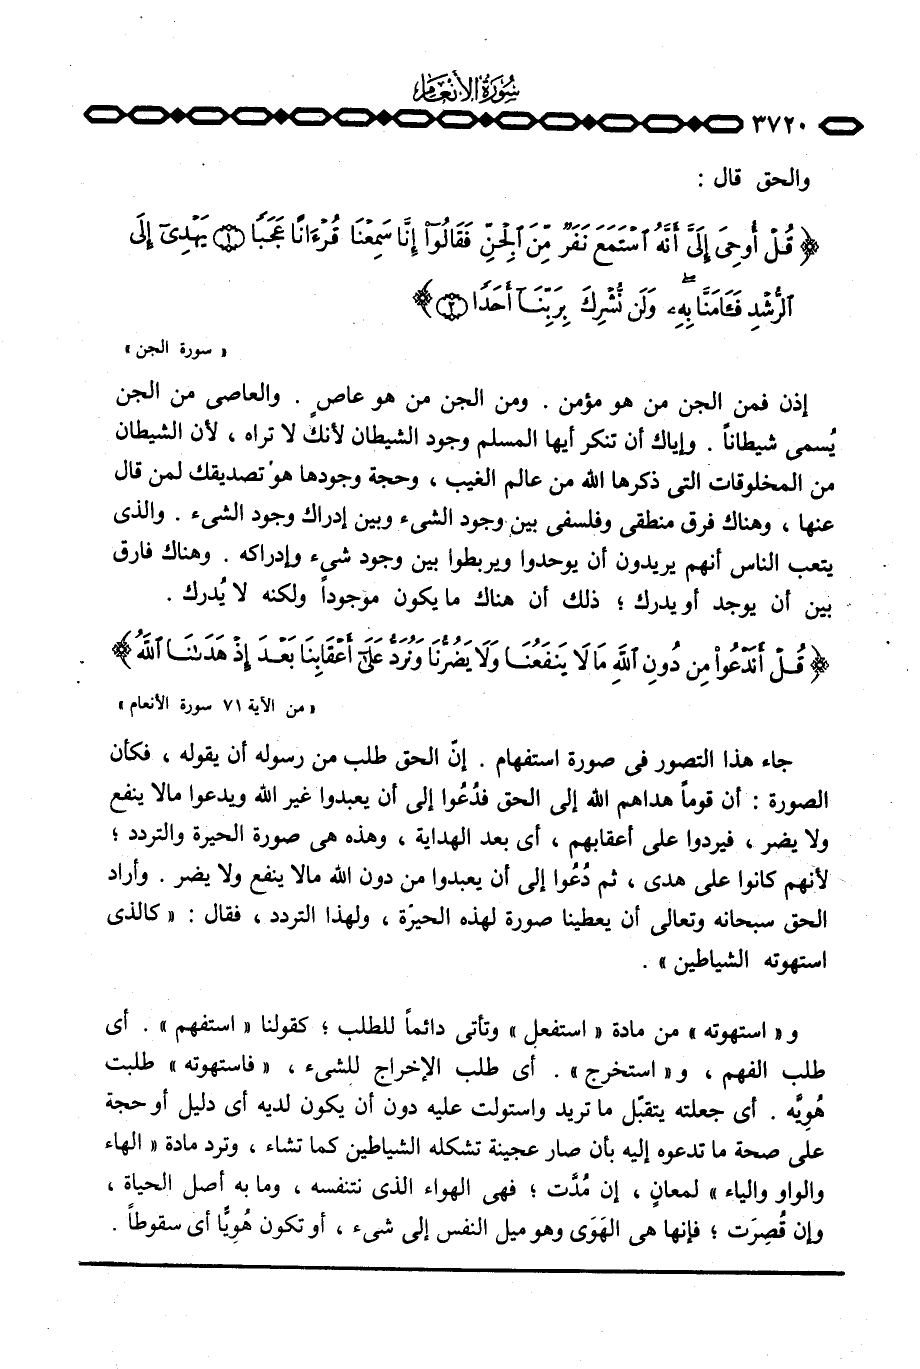 سُورَةُ الأَنْعَامِ
٣٧٢٠
والحق قال :
﴿ قُلْ أُوحِىَ إِلَىَّ أَنَّهُ ٱسْتَمَعَ نَفَرٌ مِّنَ ٱلْجِنِّ فَقَالُوٓا۟ إِنَّا سَمِعْنَا قُرْءَانًا عَجَبًا ﴿١﴾ يَهْدِىٓ إِلَى
ٱلرُّشْدِ فَـَٔامَنَّا بِهِۦ ۖ وَلَن نُّشْرِكَ بِرَبِّنَآ أَحَدًا ﴿٢﴾ ﴾
« سورة الجن »
إذن فمن الجن من هو مؤمن . ومن الجن من هو عاصٍ . والعاصى من الجن
يُسمى شيطاناً . وإياك أن تنكر أيها المسلم وجود الشيطان لأنك لا تراه ، لأن الشيطان
من المخلوقات التى ذكرها الله من عالم الغيب ، وحجة وجودها هو تصديقك لمن قال
عنها ، وهناك فرق منطقى وفلسفى بين وجود الشىء وبين إدراك وجود الشىء . والذى
يتعب الناس أنهم يريدون أن يوحدوا ويربطوا بين وجود شىء وإدراكه . وهناك فارق
بين أن يوجد أو يدرك ؛ ذلك أن هناك ما يكون موجوداً ولكنه لا يُدرك .
﴿ قُلْ أَنَدْعُوا۟ مِن دُونِ ٱللَّهِ مَا لَا يَنفَعُنَا وَلَا يَضُرُّنَا وَنُرَدُّ عَلَىٰٓ أَعْقَابِنَا بَعْدَ إِذْ هَدَىٰنَا ٱللَّهُ ﴾
« من الآية ٧١ سورة الأنعام »
جاء هذا التصور فى صورة استفهام . إنّ الحق طلب من رسوله أن يقوله ، فكأن
الصورة : أن قوماً هداهم الله إلى الحق فدُعُوا إلى أن يعبدوا غير الله ويدعوا مالا ينفع
ولا يضر ، فيردوا على أعقابهم ، أى بعد الهداية ، وهذه هى صورة الحيرة والتردد ؛
لأنهم كانوا على هدى ، ثم دُعُوا إلى أن يعبدوا من دون الله مالا ينفع ولا يضر . وأراد
الحق سبحانه وتعالى أن يعطينا صورة لهذه الحيرة ، ولهذا التردد ، فقال : « كالذى
استهوته الشياطين » .
و« استهوته » من مادة « استفعل » وتأتى دائماً للطلب ؛ كقولنا « استفهم » . أى
طلب الفهم ، و« استخرج » . أى طلب الإخراج للشىء ، « فاستهوته » طلبت
هُويَّه . أى جعلته يتقبّل ما تريد واستولت عليه دون أن يكون لديه أى دليل أو حجة
على صحة ما تدعوه إليه بأن صار عجينة تشكله الشياطين كما تشاء ، وترد مادة « الهاء
والواو والياء » لمعانٍ ، إن مُدَّت ؛ فهى الهواء الذى نتنفسه ، وما به أصل الحياة ،
وإن قُصِرَت ؛ فإنها هى الهَوَى وهو ميل النفس إلى شىء ، أو تكون هُويًّا أى سقوطاً .